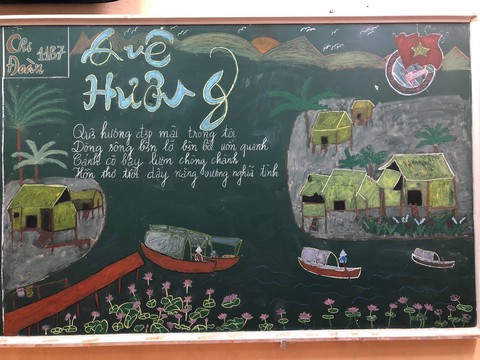 Chi
Đoàn 11B7
Quê
Hương
Quê hương đẹp mãi trong tôi
Dòng sông bên lở bên bồi uốn quanh
Cánh cò bay lượn chòng chành
Hồn thơ trổi dậy nặng vương nghĩa tình